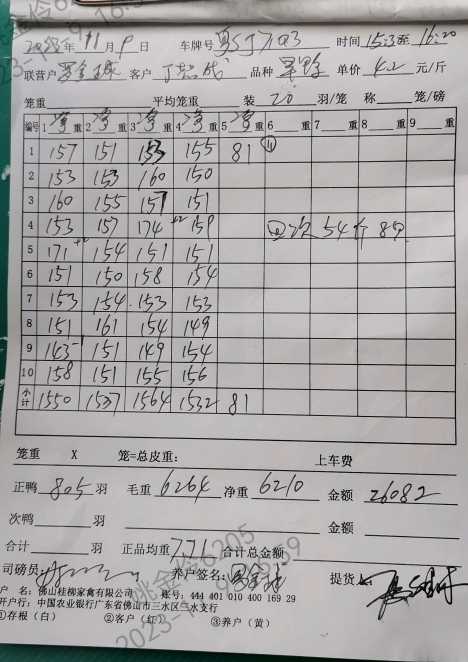 2023年 11月9日 车牌号 时间 15:3至16:20
联营户 客户 品种 单价 4.2 元/斤
笼重 平均笼重 装 20 羽/笼 称 笼/磅
编号 1 净重 2 净重 3 净重 4 净重 5 净重 6 重 7 重 8 重 9 重
1 157 151 153 155 81 ⑪
2 153 153 160 150
3 160 155 157 151
4 153 157 174 +2 159 回次 54斤 8只
5 171 +2 154 151 151
6 151 150 158 154
7 153 154 153 153
8 151 161 154 149
9 143 -1 151 149 154
10 158 151 155 156
小计 1550 1537 1564 1532 81
笼重 X 笼=总皮重: 上车费
正鸭 805 羽 毛重 6264 净重 6210 金额 26082
次鸭 羽 金额
合计 羽 正品均重 7.71 合计总金额
司磅员: 养户签名: 提货人:
户 名: 佛山桂柳家禽有限公司 账号: 444 401 010 400 169 29
开户行: 中国农业银行广东省佛山市三水区三水支行
①存根(白) ②客户(红) ③养户(黄)